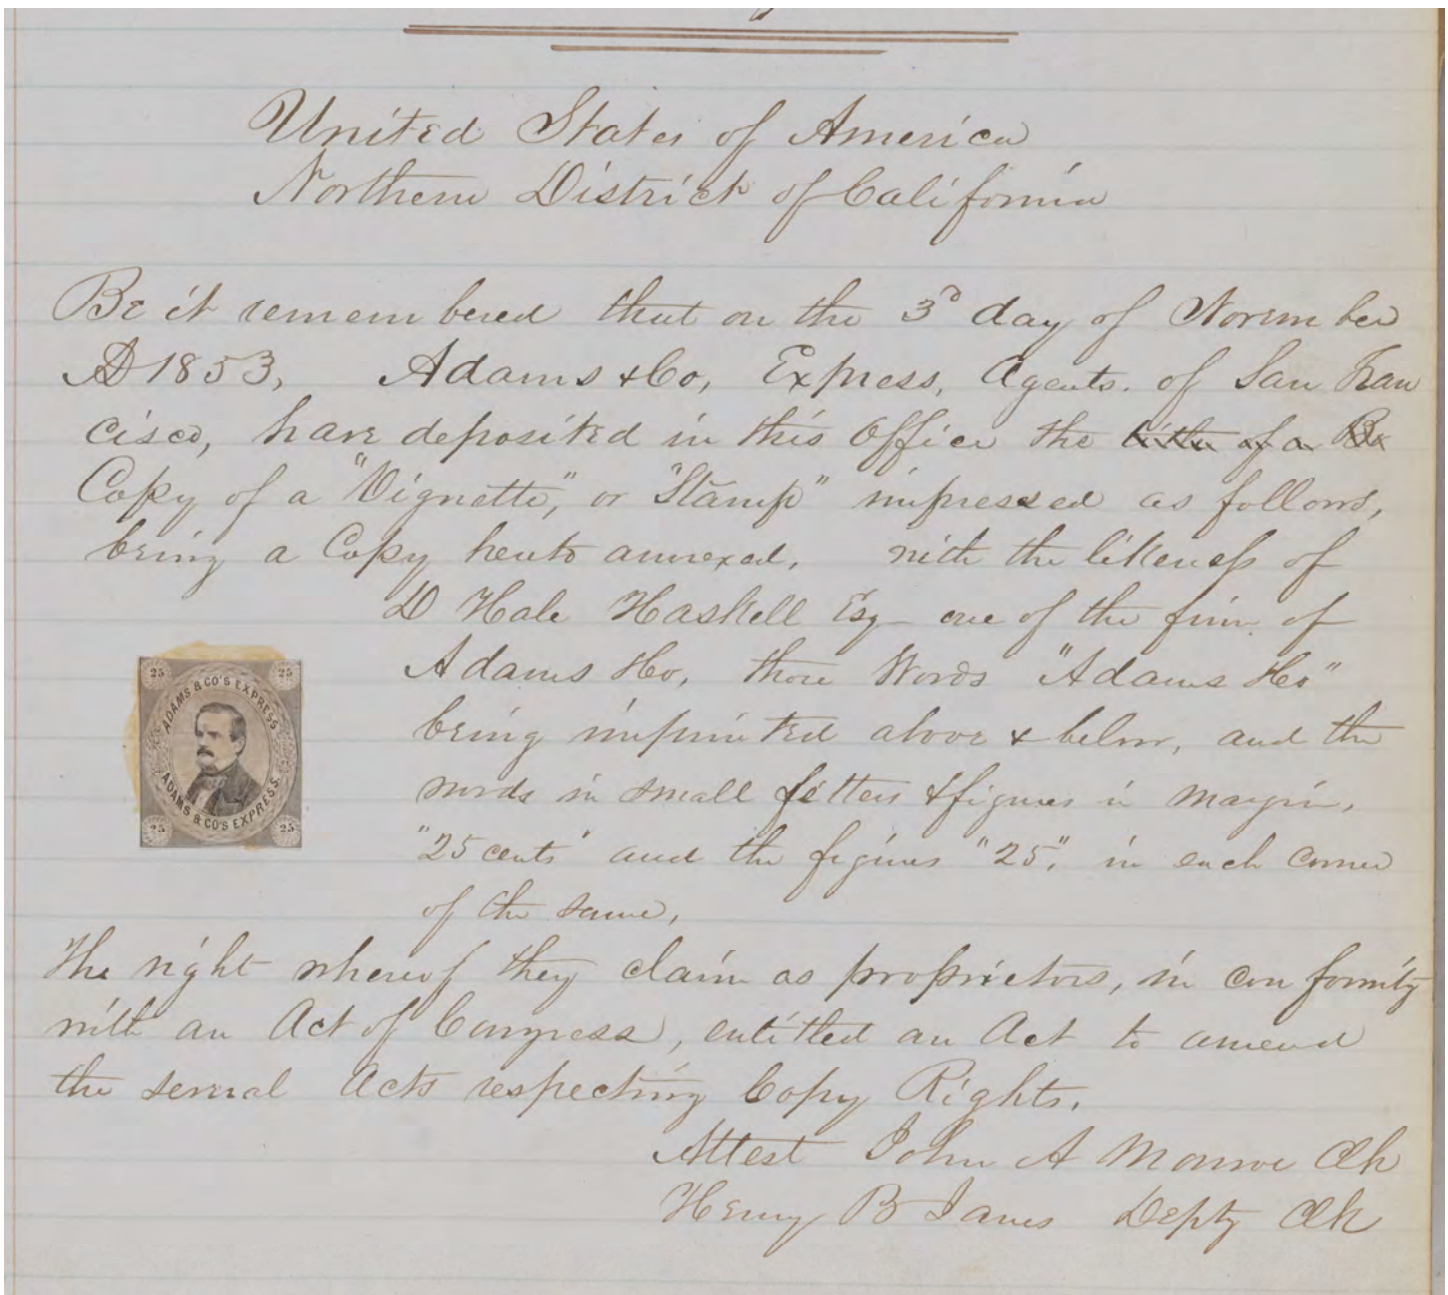 United States of America
Northern District of California
Be it remembered that on the 3d day of November
AD 1853, Adams & Co, Express, Agents. of San Fran
cisco, have deposited in this Office the title of a Bo
Copy of a "Vignette", or "Stamp" impressed as follows,
being a Copy hereto annexed, with the likeness of
D Hale Haskell Esq - one of the firm of
Adams & Co, those Words "Adams & Co"
being imprinted above & below, and the
words in small letters & figures in margin,
"25 cents" and the figures "25", in each corner
of the same,
25 25
ADAMS & CO'S EXPRESS
ADAMS & CO'S EXPRESS.
25 25
The right whereof they claim as proprietors, in conformity
with an Act of Congress, entitled an Act to amend
the several Acts respecting Copy Rights.
Attest John A Monroe Clk
Henry B Janes Depty Clk